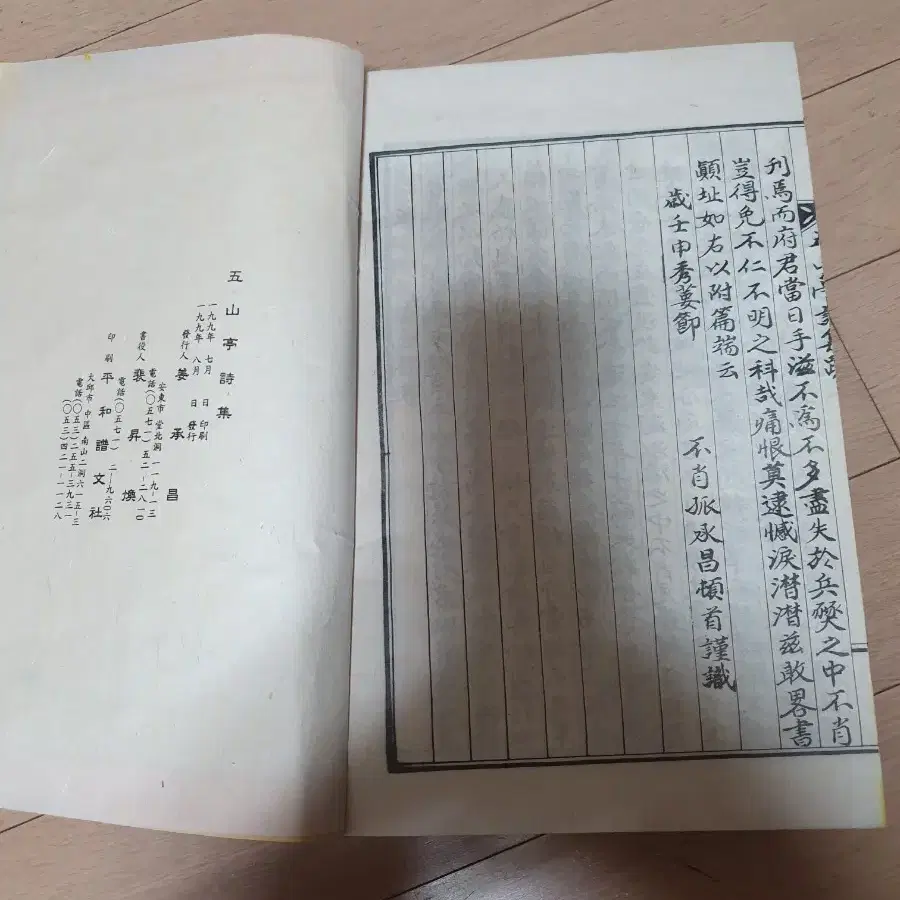 刋焉而府君當日手滋不爲不多盡失於兵燹之中不肖
豈得免不仁不明之科哉痛恨莫逮慽淚潸潸茲敢畧書
顚址如右以附篇端云
歲壬申秀葽節 不肖孤承昌頓首謹識
五山亭詩集
一九九年 七月 日 印刷
一九九年 八月 日 發行
發行人 姜承昌
安東市 堂北洞 一一九-一三
電話(〇五七一)五二-二八一〇
書役人 裵昇煥
電話(〇五七一) 二-九六〇六
印刷 平和譜文社
大邱市 中區 南山二洞六一五-三
電話(〇五三)二五五-三九三一
(〇五三)四二一-一一二八